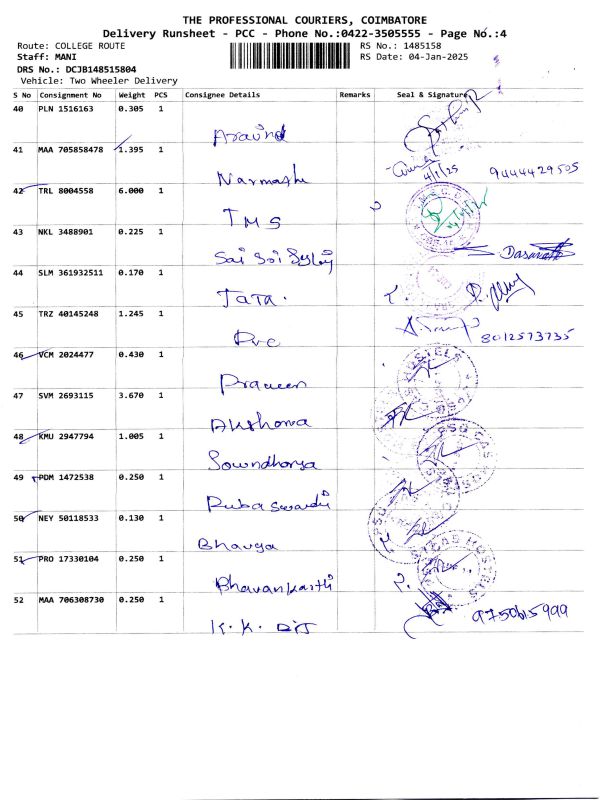 THE PROFESSIONAL COURIERS, COIMBATORE
Delivery Runsheet - PCC - Phone No.:0422-3505555 - Page No.:4
Route: COLLEGE ROUTE RS No.: 1485158
Staff: MANI RS Date: 04-Jan-2025
DRS No.: DCJB148515804
Vehicle: Two Wheeler Delivery
S No Consignment No Weight PCS Consignee Details Remarks Seal & Signature
40 PLN 1516163 0.305 1
Aravind
41 MAA 705858478 1.395 1
4/1/25 9444429505
Narmashi
42 TRL 8004558 6.000 1
TMS
43 NKL 3488901 0.225 1
Sai Sri
Dasarath
44 SLM 361932511 0.170 1
TATA.
45 TRZ 40145248 1.245 1
8012573735
Pvc
46 VCM 2024477 0.430 1
Praveen
47 SVM 2693115 3.670 1
Akshaya
48 KMU 2947794 1.005 1
Sowndharya
49 PDM 1472538 0.250 1
50 NEY 50118533 0.130 1
Bhavya
51 PRO 17330104 0.250 1
Bhavankarthi
52 MAA 706308730 0.250 1
9750615999
K.K.